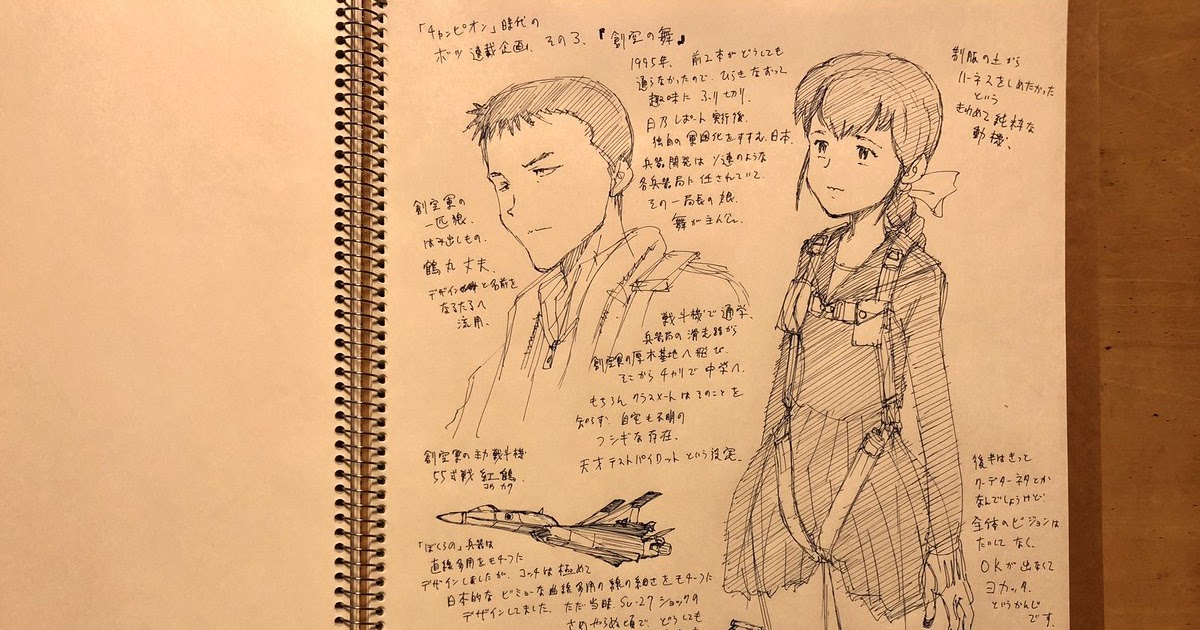 「チャンピオン」時代の
ボツ連載企画、その3、『創空の舞』
1995年、前2本がどうしても
通らなかったので、ひらきなおって
趣味にふり切り、
日乃レポート実行後、
独自の軍国化をすすむ、日本。
兵器開発はソ連のような
各兵器局に任されていて、
その一局長の娘、
舞が主人公。
制服の上から
ハーネスをしめたかった
という
きわめて純粋な
動機、
創空軍の
一匹狼、
はみ出しもの、
鶴丸丈夫、
デザインと名前を
なるたるへ
流用、
戦斗機で通学、
兵器局の滑走路から
創空軍の厚木基地へ飛び、
そこからチャリで中学へ、
もちろんクラスメートはそのことを
知らず、自宅も不明の
フシギな存在、
天才テストパイロットという設定、
創空軍の主力戦斗機
55式戦 紅鶴、
コウカク
「ぼくらの」兵器は
直線多用をモチーフた
デザインしましたが、コッチは極めて
日本的なビミョーな曲線多用の線の細さをモチーフた
デザインしてました、ただ当時、Su-27ショックの
さめやらぬ頃で、どうしても
後半はきっと
クーデターネタとか
なんでしょうけど、
全体のビジョンは
たいしてなく、
OKが出なくて
ヨカッタ、
というかんじ
です。